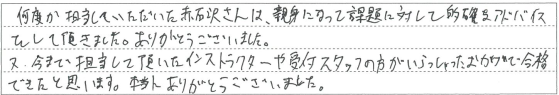 何度か担当していただいた赤石沢さんは、親身になって課題に対して的確なアドバイス
をして頂きました。ありがとうございました。
又、今まで担当して頂いたインストラクターや受付スタッフの方がいらっしゃったおかげで合格
できたと思います。本当にありがとうございました。